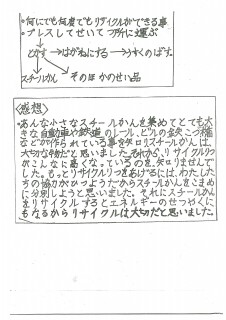 ・何にでも何度でもリサイクルができる事
・プレスしてせいてつ所に運ぶ
とかす→はがねにする→うすくのばす。
スチールかん その他かのせい品
〈感想〉
・あんな小さなスチールかんを集めてとても大
きな自動車や鉄道のレール、ビルの鉄こつ橋
などが作られている事を知りスチールかんは、
大切な物だと思いました。それから、リサイクルりつ
がこんなに高くなっているのを、知りませんで
した。もっとリサイクルりつをあげるには、わたした
ちの協力がひつようだからスチールかんをこまめ
に分別しようと思いました。それにスチールかん
をリサイクルするとエネルギーのせつやくに
もなるからリサイクルは大切だと思いました。